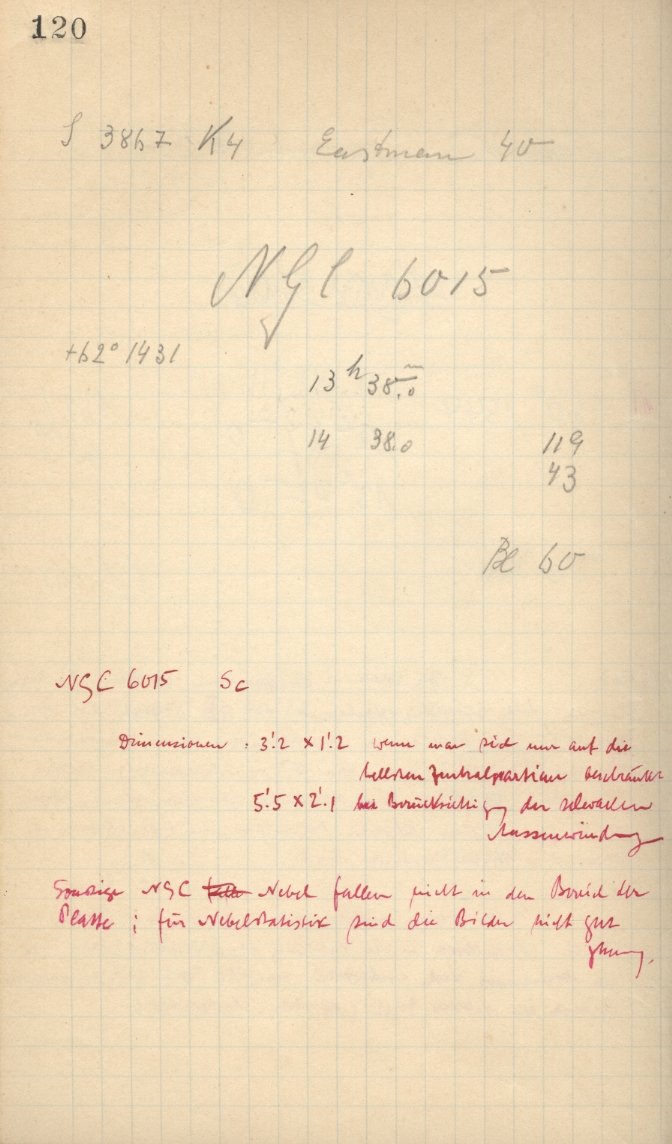 120
S 3867 K4 Eastman 40
NGC 6015
+62° 1431
13 h 38.0 m
14 38.0 119
43
60
NGC 6015 Sc
Dimensionen : 3'.2 × 1'.2 wenn man sich nur auf die
helleren Zentralpartien beschränkt
5'.5 × 2'.1 bei Berücksichtigung der schwachen
Aussenwindung
Sonstige NGC Nebel fallen nicht in den Bereich der
Platte ; für Nebelstatistik sind die Bilder nicht gut
genug.